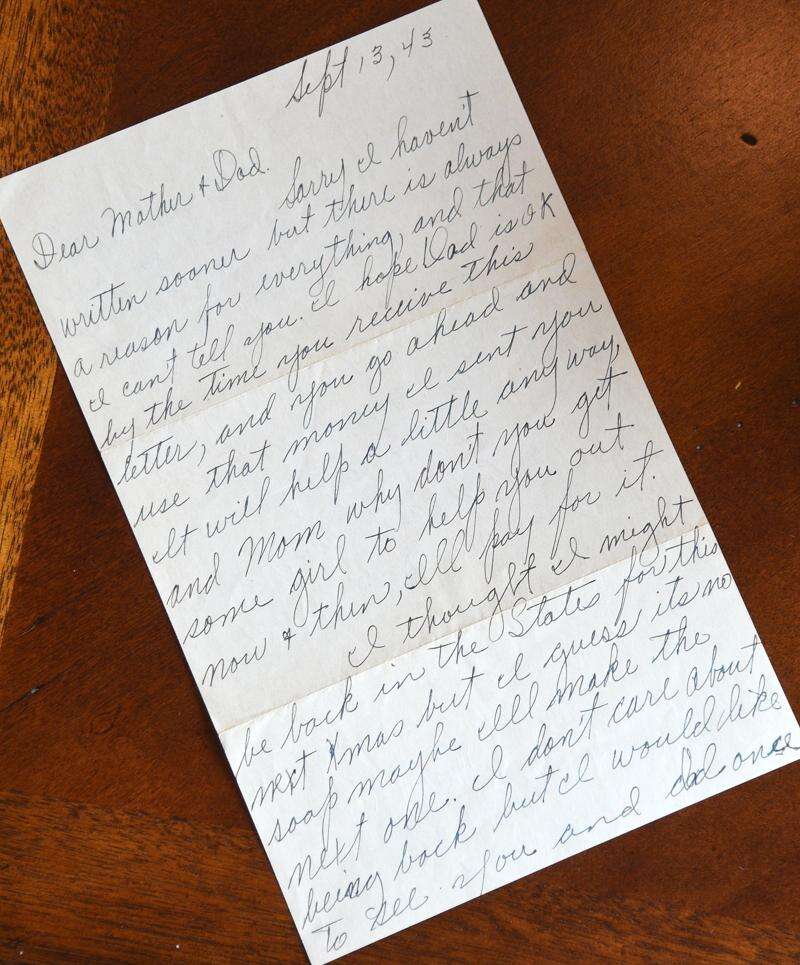 Sept 13, 43
Dear Mother & Dad.
Sorry I haven't
written sooner but there is always
a reason for everything, and that
I can't tell you. I hope Dad is OK
by the time you receive this
letter, and you go ahead and
use that money I sent you
It will help a little any way,
and Mom why don't you get
some girl to help you out
now & then, I'll pay for it.
I thought I might
be back in the States for this
next Xmas but I guess its no
soap maybe I'll make the
next one. I don't care about
being back but I would like
to see you and dad once